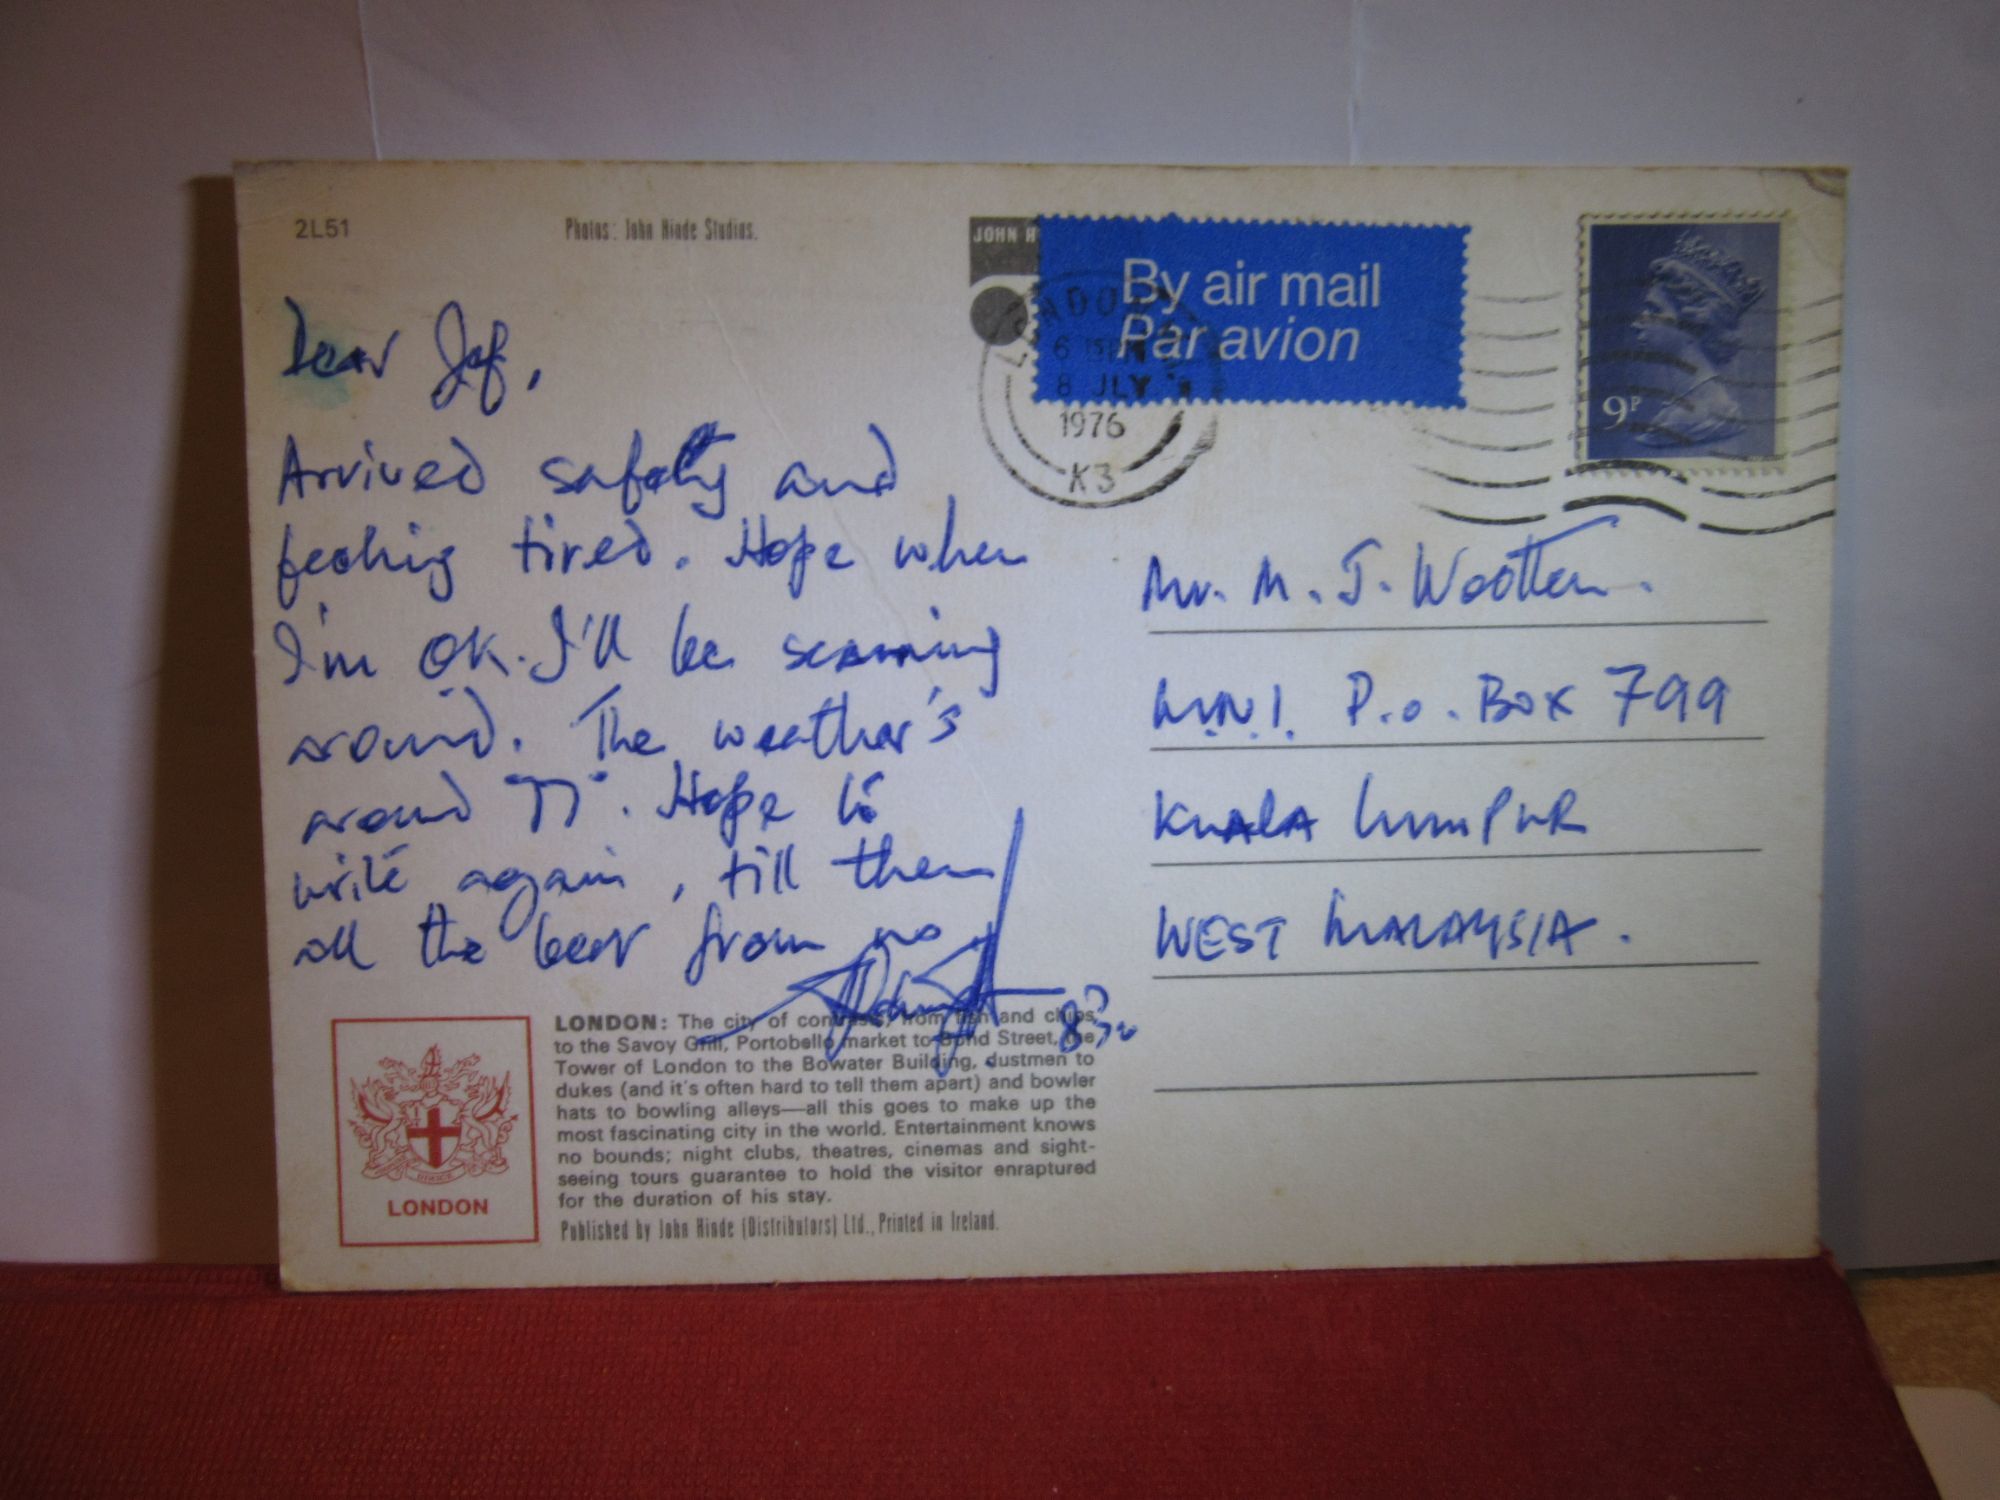 2L51
Photos: John Hinde Studios.
JOHN H
By air mail
Par avion
LONDON
8 JLY
1976
K3
9P
Dear Jef,
Arrived safely and
feeling tired. Hope when
I'm OK. I'll be scanning
around. The weather's
around 77°. Hope to
write again, till then
all the best from
Mr. M. J. Wootten.
P.O. BOX 799
KUALA LUMPUR
WEST MALAYSIA.
LONDON: The city of contrasts, from fish and chips,
to the Savoy Grill, Portobello market to Bond Street, the
Tower of London to the Bowater Building, dustmen to
dukes (and it's often hard to tell them apart) and bowler
hats to bowling alleys—all this goes to make up the
most fascinating city in the world. Entertainment knows
no bounds; night clubs, theatres, cinemas and sight-
seeing tours guarantee to hold the visitor enraptured
for the duration of his stay.
Published by John Hinde (Distributors) Ltd., Printed in Ireland.
LONDON